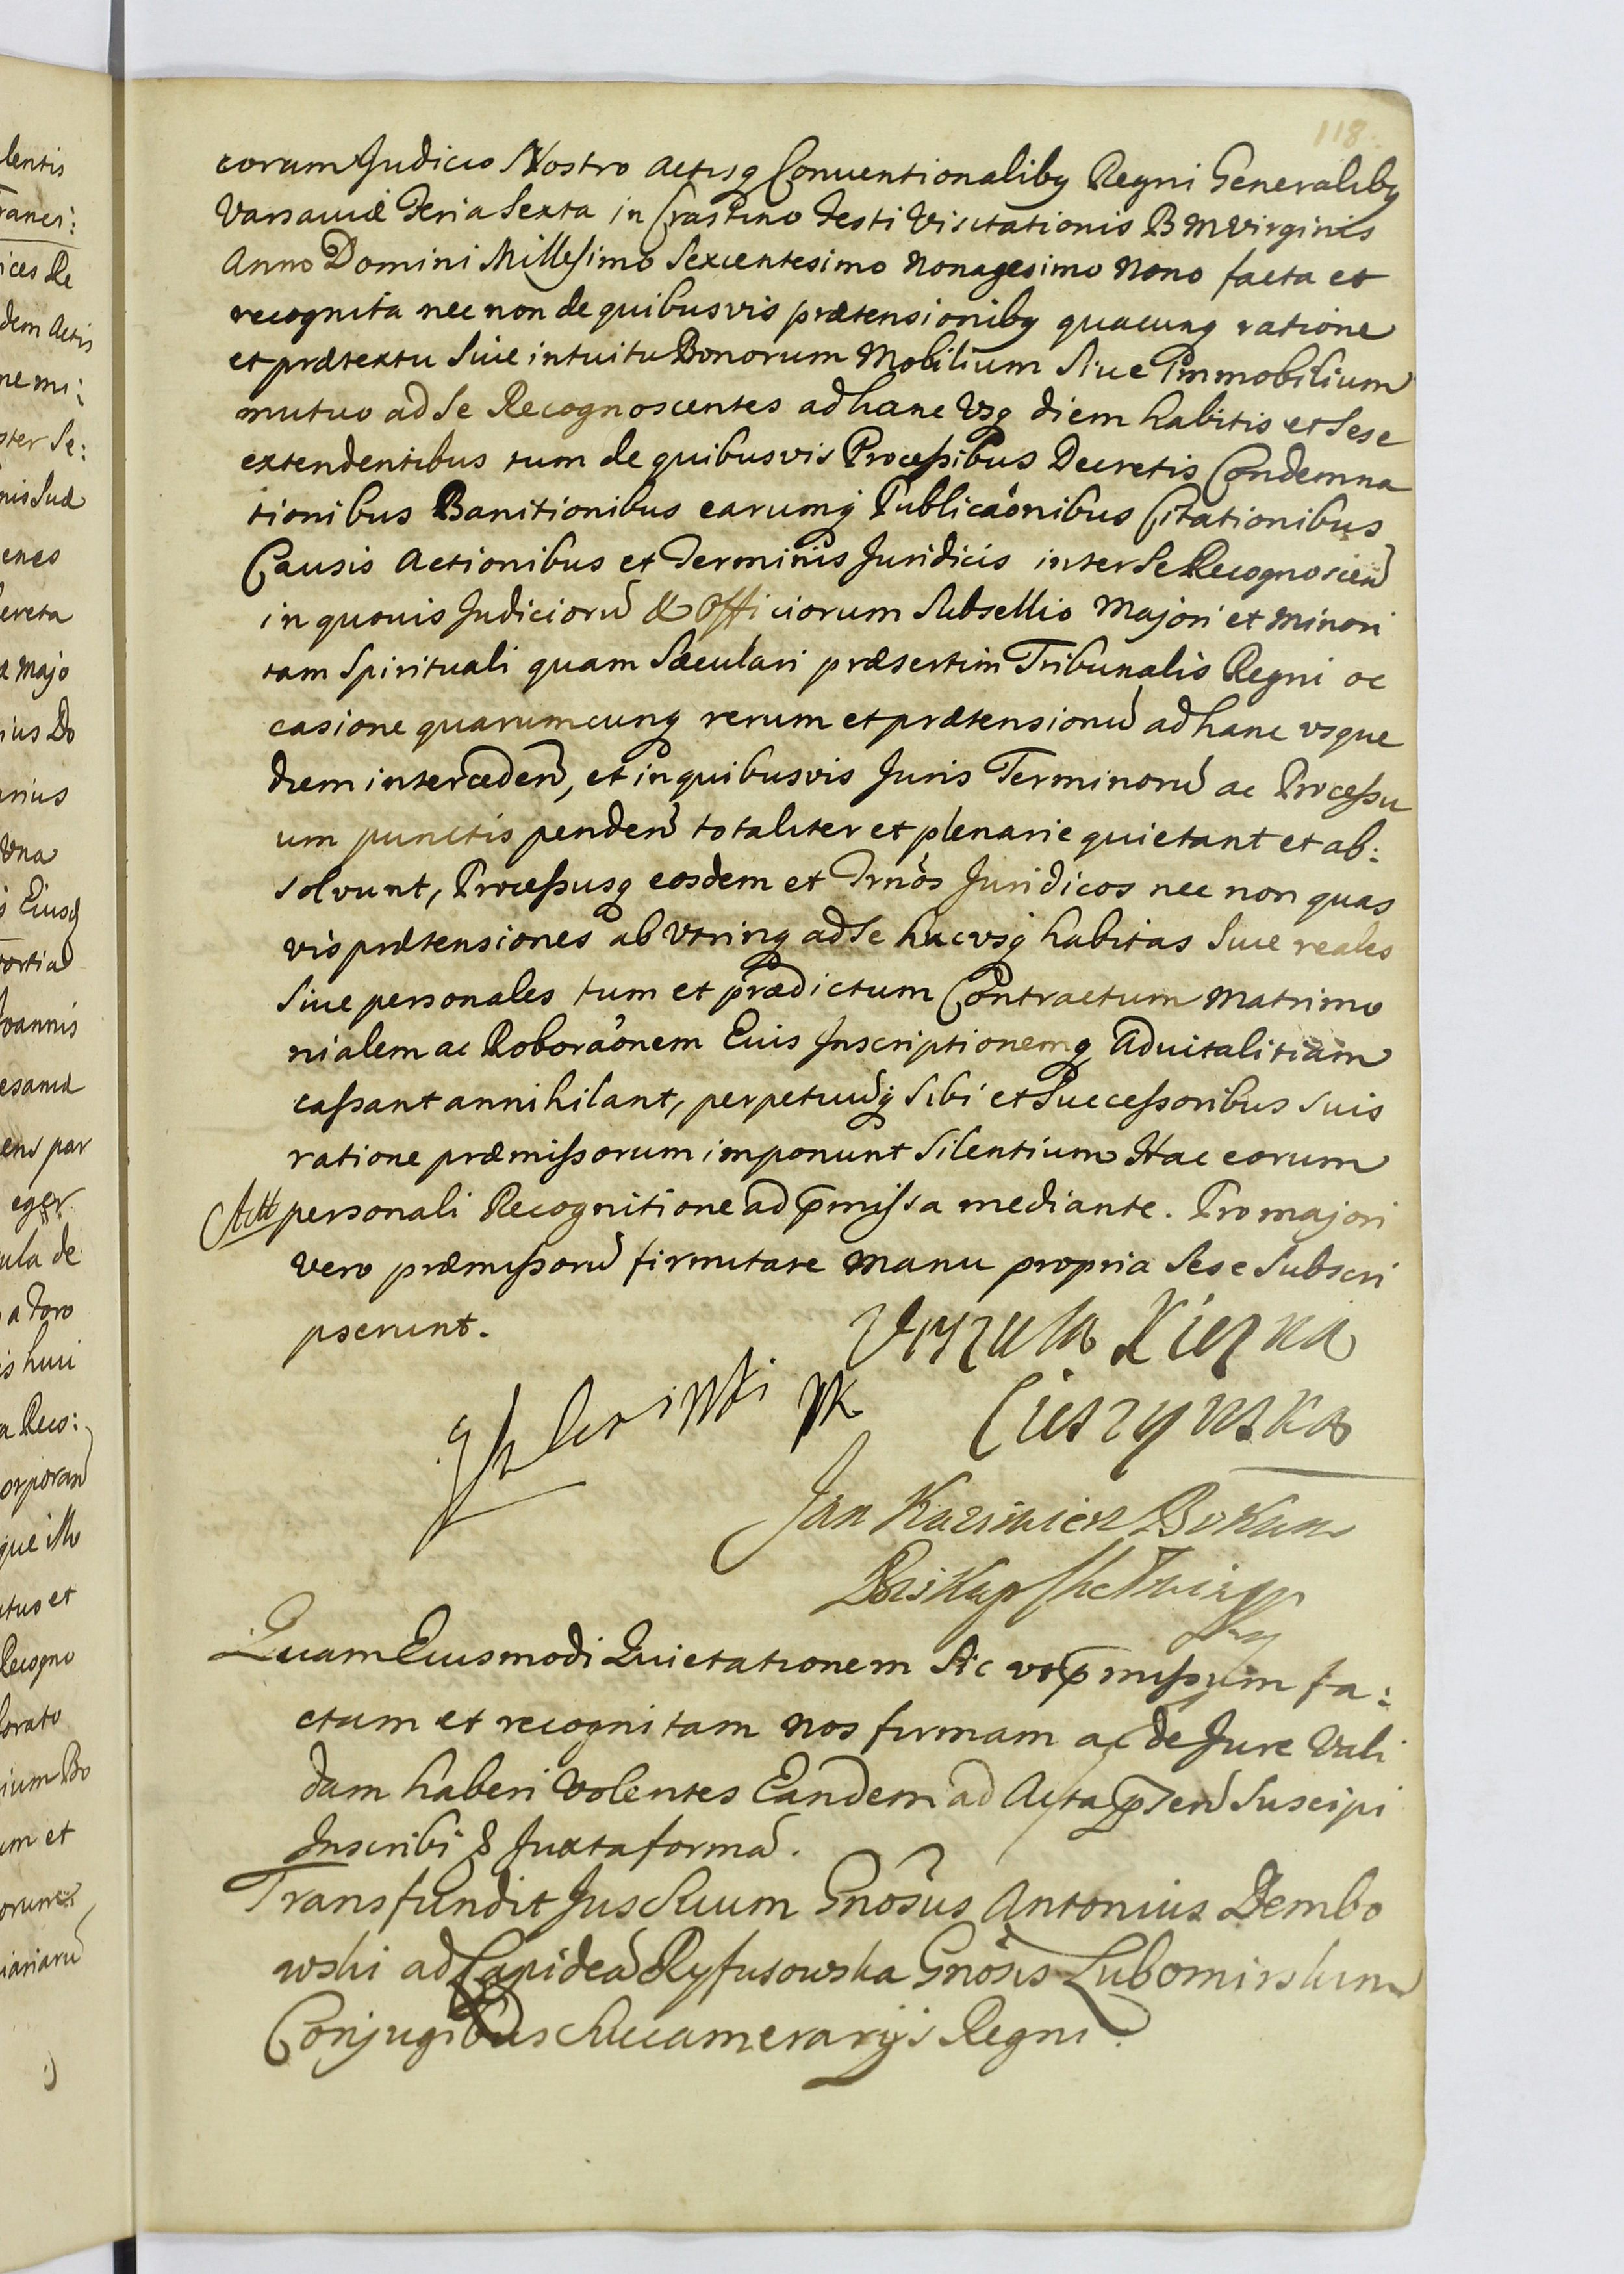 118.
coram Judicio Nostro Actisq Conventionalibq Regni Generalibq
Varsaviæ Feria Sexta in Crastino Festi Visitationis B M Virginis
Anno Domini Millesimo Sexcentesimo Nonagesimo Nono facta et
recognita nec non de quibusvis prætensionibq quacunq ratione
et prætextu Sive intuitu Bonorum Mobilium Sive Immobilium
mutuo ad Se Recognoscentes ad hanc Vsq diem habitis et Sese
extendentibus tum de quibusvis Processibus Decretis Condemna
tionibus Banitionibus earumq Publicaonibus Citationibus
Causis Actionibus et Terminis Juridicis inter Se Recognoscen
in quovis Judicioru & Officiorum Subsellio Majori et Minori
tam Spirituali quam Sæculari præsertim Tribunalis Regni oc
casione quarumcunq rerum et prætensionu ad hanc vsque
diem interceden, et in quibusvis Juris Terminoru ac Processu
um punctis penden totaliter et plenarie quietant et ab:
solvunt, Processusq eosdem et Trnos Juridicos nec non quas
vis prætensiones ab Vtrinq ad Se hucvsq habitas Sive reales
Sive personales tum et prædictum Contractum Matrimo
nialem ac Roboraonem Eius Inscriptionemq Advitalitiam
cassant annihilant, perpetuuq Sibi et Successoribus Suis
ratione præmissorum imponunt Silentium Hac eorum
personali Recognitione ad pmissa mediante. Pro majori
vero præmissoru firmitate Manu propria Sese Subscri
pserunt.
Vrszula Kierzka
Cieszynska
Jan Kazimierz Bokum
Biskup
Quam Eiusmodi Quietationem Sic vt pmissum fa:
ctam et recognitam nos firmam ac de Jure Vali
dam haberi Volentes Eandem ad Acta pnsen Suscipi
Inscribi & Juxta forma.
Transfundit Jus Suum Gnosus Antonius Dembo
wski ad Lapidea Ryfusowska Gnosis Lubomirskim
Conjugibus Succamerarijs Regni.